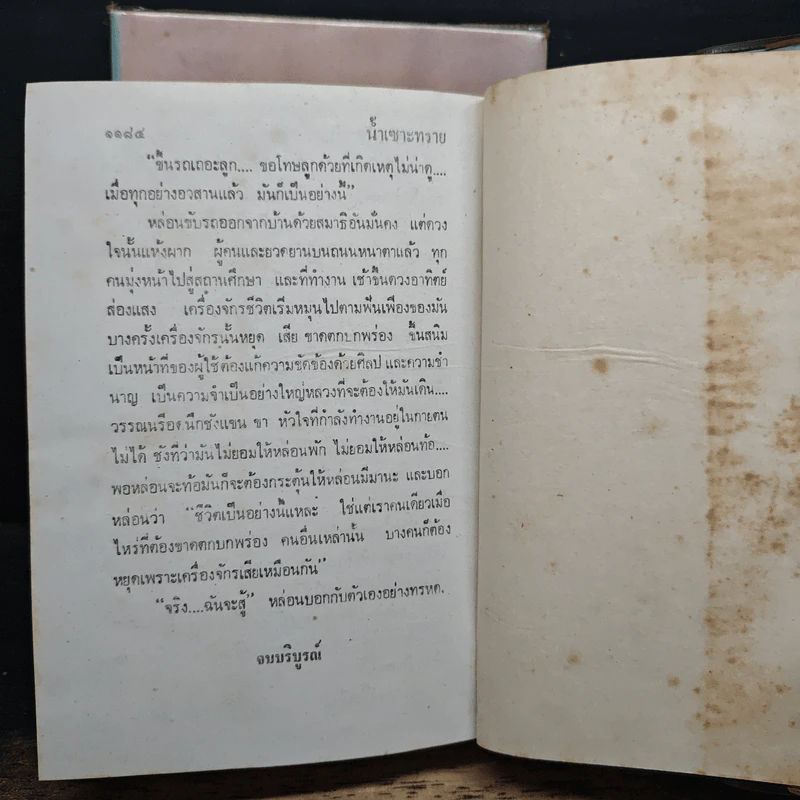 ๑๑๘๔ น้ำเซาะทราย
“ขึ้นรถเถอะลูก.... ขอโทษลูกด้วยที่เกิดเหตุไม่น่าดู....
เมื่อทุกอย่างอวสานแล้ว มันก็เป็นอย่างนี้”
หล่อนขับรถออกจากบ้านด้วยสมาธิอันมั่นคง แต่ดวง
ใจนั้นแห้งผาก ผู้คนและยวดยานบนถนนหนาตาแล้ว ทุก
คนมุ่งหน้าไปสู่สถานศึกษา และที่ทำงาน เช้าขึ้นดวงอาทิตย์
ส่องแสง เครื่องจักรชีวิตเริ่มหมุนไปตามฟันเฟืองของมัน
บางครั้งเครื่องจักรนั้นหยุด เสีย ขาดตกบกพร่อง ขึ้นสนิม
เป็นหน้าที่ของผู้ใช้ต้องแก้ความขัดข้องด้วยศิลป และความชำ
นาญ เป็นความจำเป็นอย่างใหญ่หลวงที่จะต้องให้มันเดิน....
วรรณนรีอดนึกชังแขน ขา หัวใจที่กำลังทำงานอยู่ในกายตน
ไม่ได้ ชังที่ว่ามันไม่ยอมให้หล่อนพัก ไม่ยอมให้หล่อนท้อ....
พอหล่อนจะท้อมันก็จะต้องกระตุ้นให้หล่อนมีมานะ และบอก
หล่อนว่า “ชีวิตเป็นอย่างนี้แหละ ใช่แต่เราคนเดียวเมื่อ
ไหร่ที่ต้องขาดตกบกพร่อง คนอื่นเหล่านั้น บางคนก็ต้อง
หยุดเพราะเครื่องจักรเสียเหมือนกัน”
“จริง....ฉันจะสู้” หล่อนบอกกับตัวเองอย่างทรหด.
จบบริบูรณ์